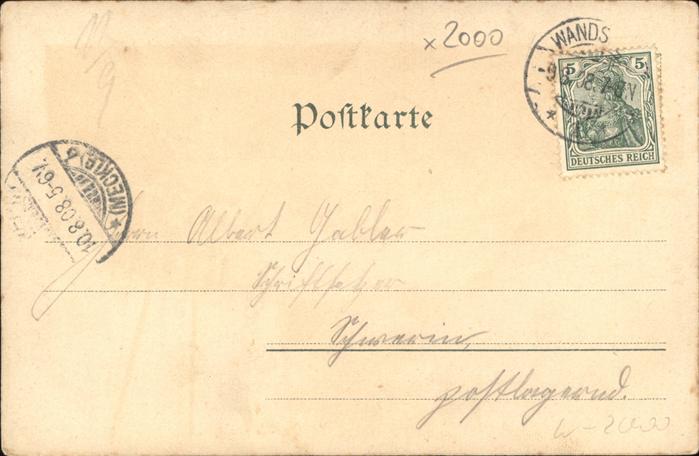 x 2000
WANDS
5 5
DEUTSCHES REICH
Postkarte
(MECKLB)
10.8.08.5-6V.
Herrn Albert Gabler
Schriftsetzer
Schwerin,
postlagernd.